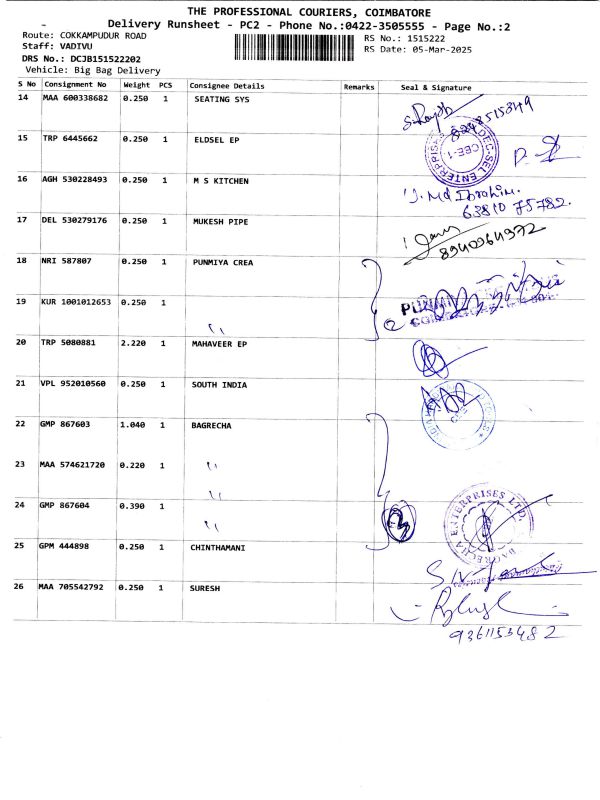 THE PROFESSIONAL COURIERS, COIMBATORE
Delivery Runsheet - PC2 - Phone No.:0422-3505555 - Page No.:2
Route: COKKAMPUDUR ROAD
RS No.: 1515222
Staff: VADIVU
RS Date: 05-Mar-2025
DRS No.: DCJB151522202
Vehicle: Big Bag Delivery
S No Consignment No Weight PCS Consignee Details Remarks Seal & Signature
14 MAA 600338682 0.250 1 SEATING SYS
15 TRP 6445662 0.250 1 ELDSEL EP
16 AGH 530228493 0.250 1 M S KITCHEN
Md Ibrahim.
63810 75782.
17 DEL 530279176 0.250 1 MUKESH PIPE
8940964972
18 NRI 587807 0.250 1 PUNMIYA CREA
19 KUR 1001012653 0.250 1 "
2
20 TRP 5080881 2.220 1 MAHAVEER EP
21 VPL 952010560 0.250 1 SOUTH INDIA
22 GMP 867603 1.040 1 BAGRECHA
23 MAA 574621720 0.220 1 "
24 GMP 867604 0.390 1 "
3
BAGRECHA ENTERPRISES LTD.
25 GPM 444898 0.250 1 CHINTHAMANI
26 MAA 705542792 0.250 1 SURESH
9361153482